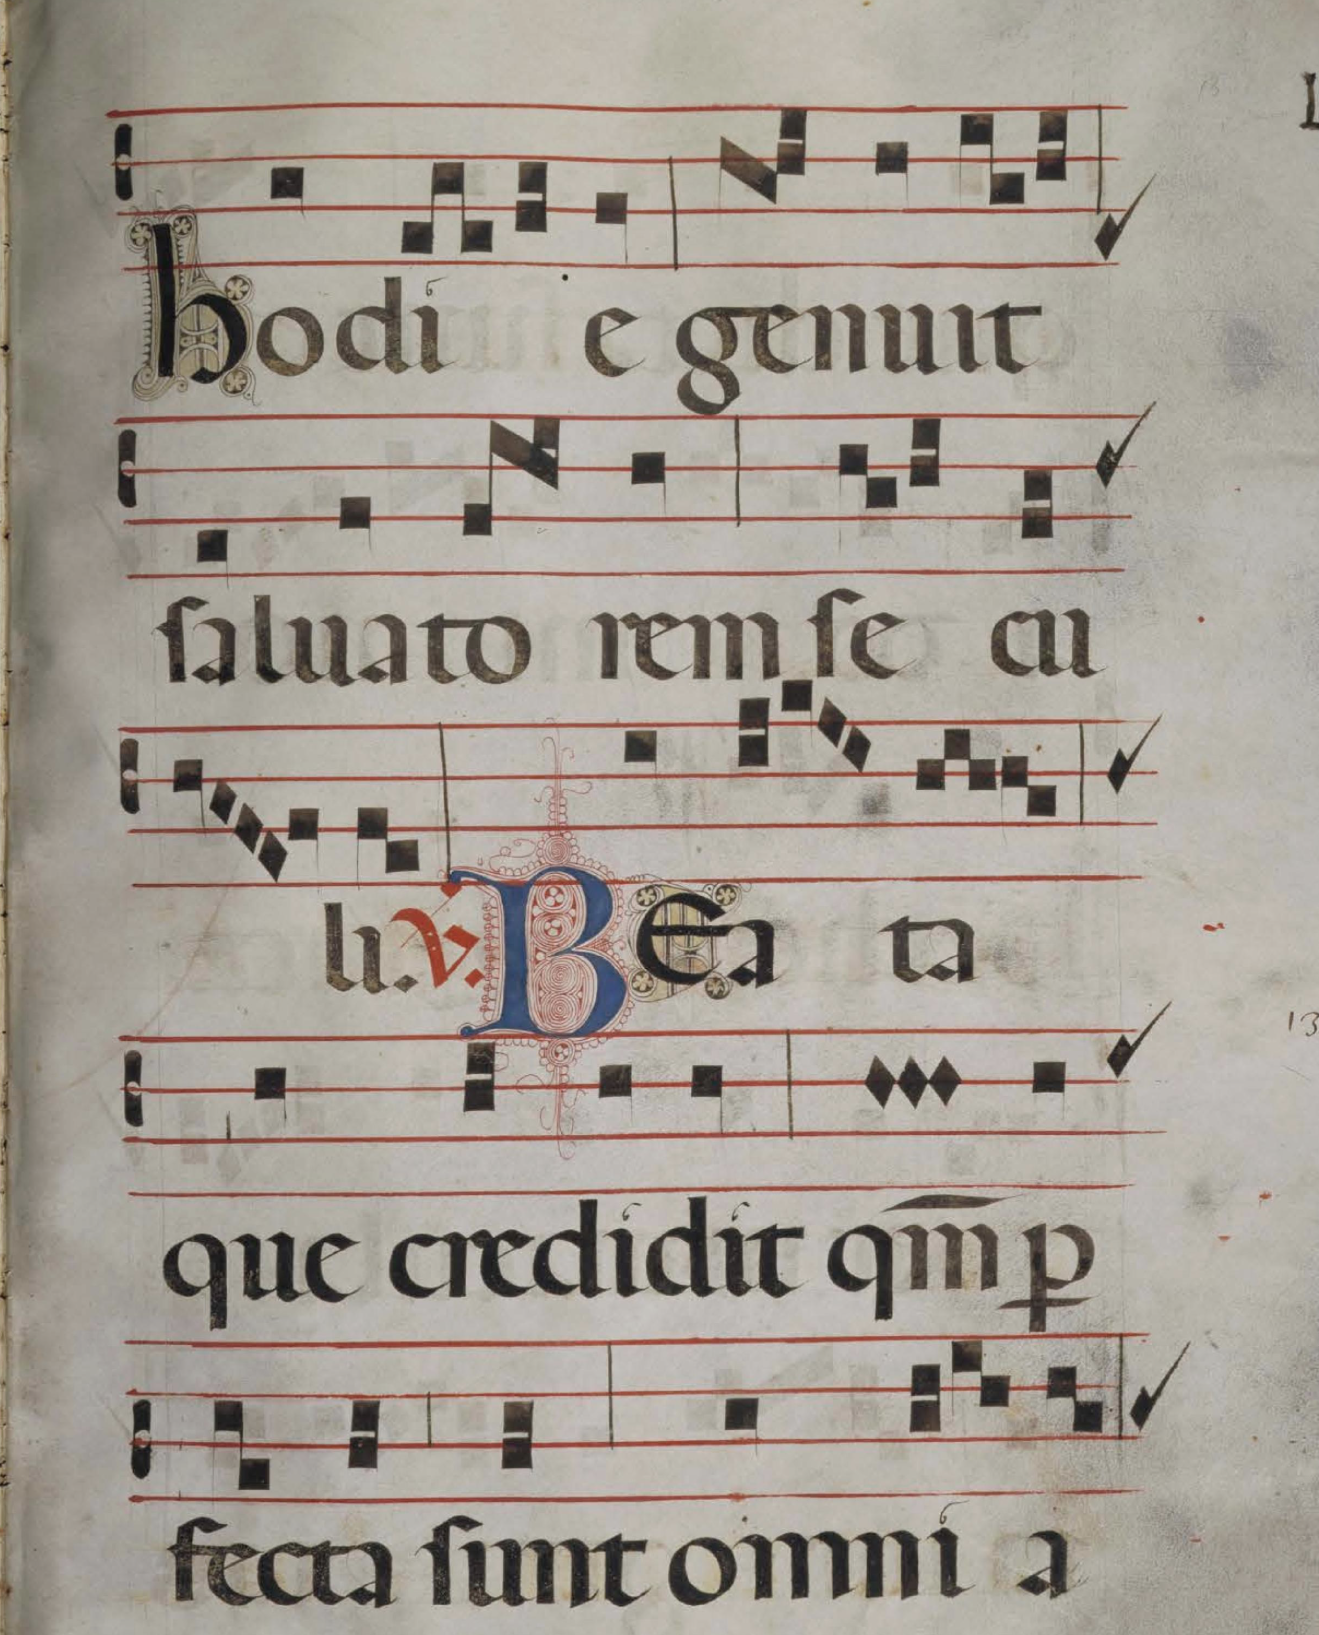 hodi e genuit
saluato rem se cu
li. v. BEa ta
que credidit qm̄ ꝑ
fecta sunt omni a
13